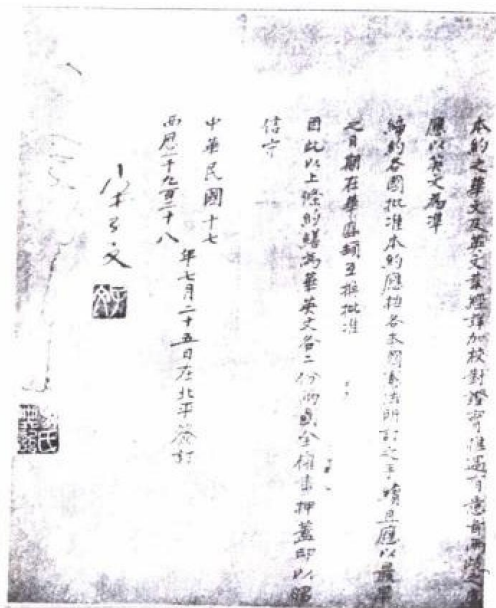 本約之華文及英文業經詳加校對證實惟遇有意旨兩歧之處
應以英文為準
締約各國批准本約應按各本國憲法所訂之手續且應以最早
之日期在華盛頓互換批准
因此以上條約繕寫華英文各二份兩國全權畫押蓋印以昭
信守
中華民國十七
西歷一千九百二十八
年七月二十五日在北平簽訂
宋子文